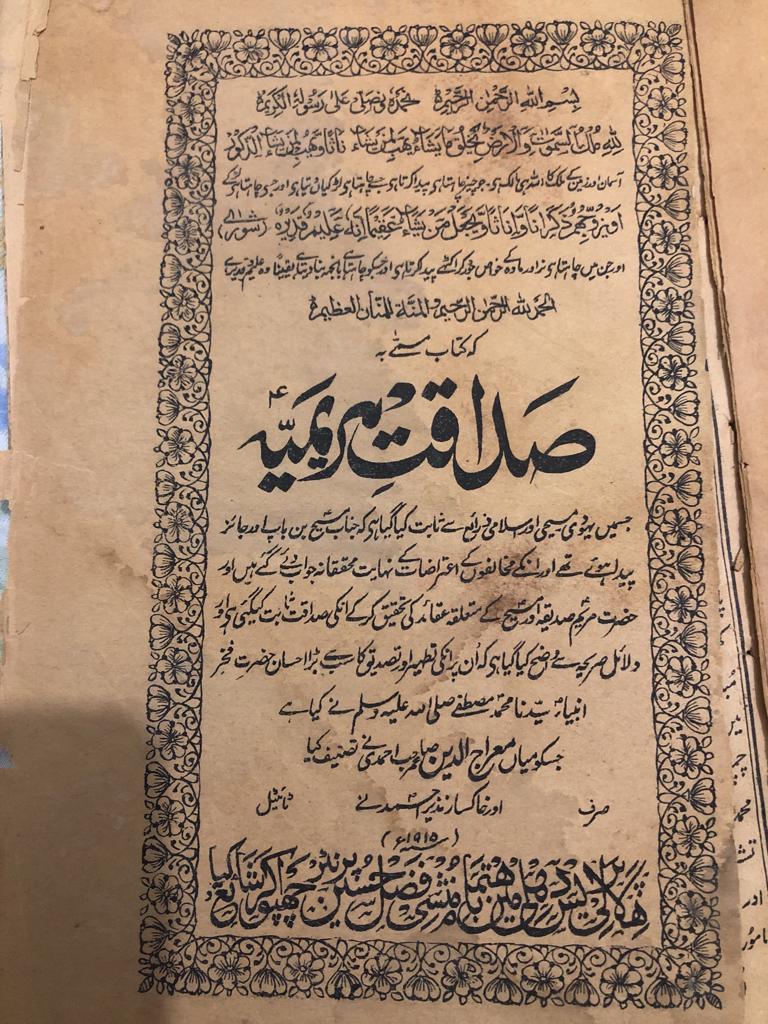 بسم اللہ الرحمٰن الرحیم نحمدہ ونصلی علیٰ رسولہ الکریم
للہ ملک السمٰوٰت والارض یخلق ما یشاء یھب لمن یشاء اناثا ویھب لمن یشاء الذکور
آسمان اور زمین کے ملک کا اللہ ہی مالک ہی۔ جو چیز چاہتا ہی پیدا کرتا ہی جسے چاہتا ہی لڑکیاں دیتا ہی اور جسی چاہتا ہی لڑکے
او یزوجھم ذکرانا واناثا ویجعل من یشاء عقیما انہ علیم قدیر (شوریٰ)
اور جن میں چاہتا ہی نر اور مادہ کے خواص جوڑ کر اکٹھے پیدا کرتا ہی اور جسکو چاہتا ہی بانجھ بنا دیتا ہی یقیناً وہ علیم قدیر ہی
الحمد للہ الرحمٰن الرحیم۔ المنۃ للمنان العظیم
کہ کتاب مسمّے بہ
صداقتِ مریمیہؑ
جسمیں یہودی مسیحی اور اسلامی ذرائع سے ثابت کیا گیا ہی کہ جناب مسیحؑ بن باپ اور جائز
پیدا ہوئے تھے اور انکے مخالفوں کے اعتراضات کے نہایت محققانہ جواب دئے گئے ہیں اور
حضرت مریمؑ صدیقہ اور مسیحؑ کے متعلقہ عقائد کی تحقیق کر کے انکی صداقت ثابت کیگئی ہی اور
دلائل صریحہ سے واضح کیا گیا ہی کہ اُن پر انکی تطہیر اور تصدیق کا سب سے بڑا احسان حضرت فخر
انبیاء سیدنا محمد مصطفےٰ صلی اللہ علیہ وسلم نے کیا ہے
جسکو میاں معراج الدین صاحب عمر احمدی نے تصنیف کیا
صرف اور خاکسار نذیر احمد نے ٹائیٹل
(سنہ ۱۹۱۵ء)
ہلالی پریس دہلی میں باہتمام منشی فضل حسین پرنٹر چھپوا کر شائع کیا